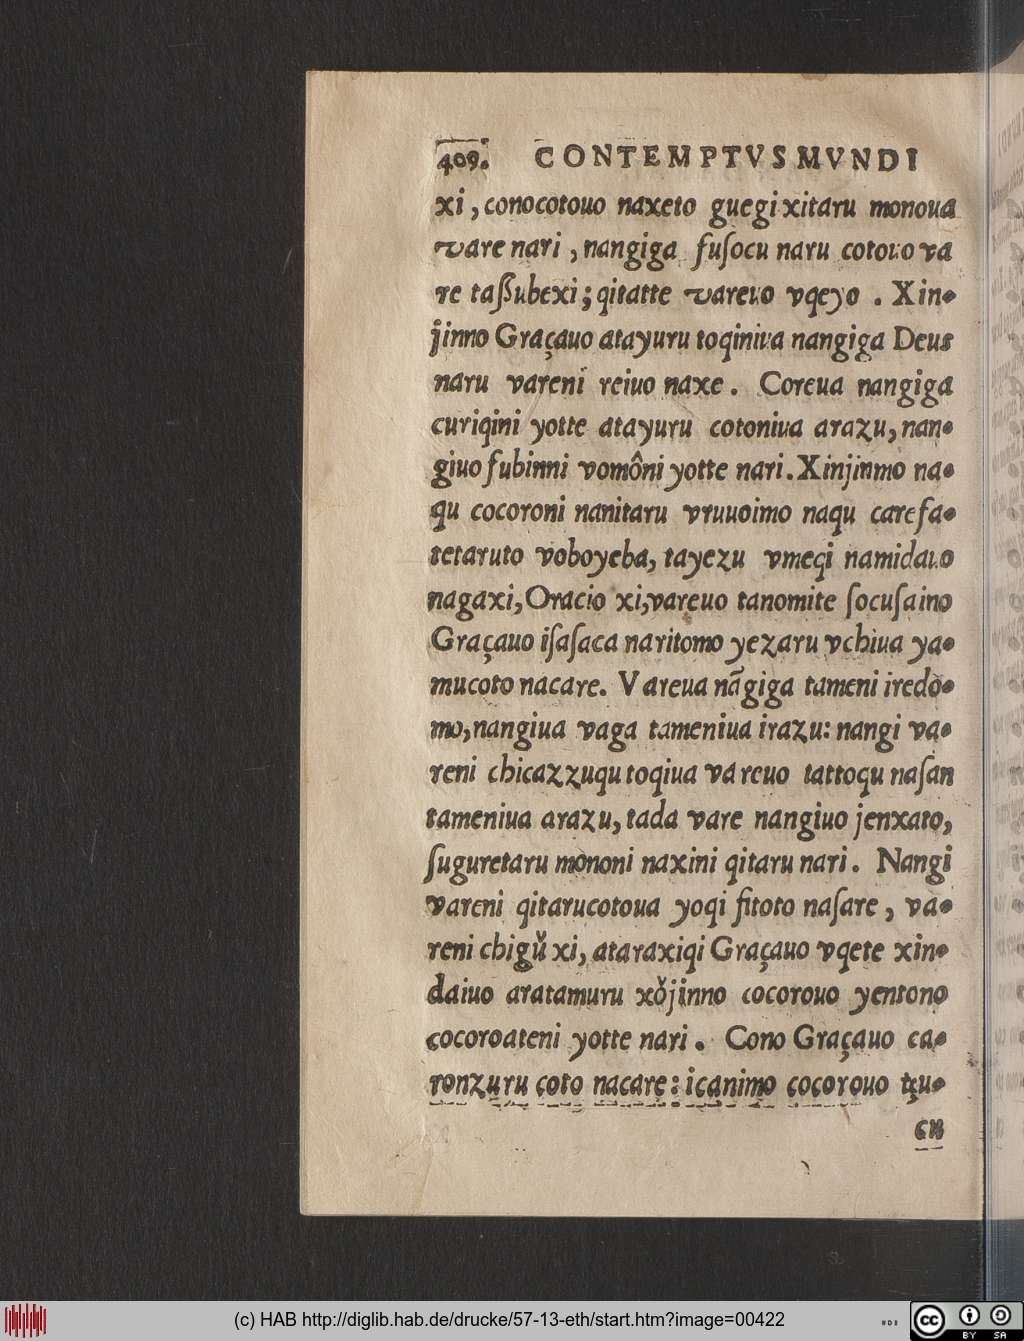 409. CONTEMPTVS MVNDI
xi, conocotouo naxeto guegixitaru monoua
vare nari, nangiga fuſocu naru cotouo va
re taßubexi; qitatte vareuo vqeyo. Xin-
jinno Graçauo atayuru toqiniua nangiga Deus
naru vareni reiuo naxe. Coreua nangiga
curiqini yotte atayuru cotoniua arazu, nan-
giuo fubinni vomôni yotte nari. Xinjinmo na-
qu cocoroni nanitaru vruuoimo naqu carefa-
tetaruto voboyeba, tayezu vmeqi namidauo
nagaxi, Oracio xi, vareuo tanomite ſocuſaino
Graçauo iſaſaca naritomo yezaru vchiua ya-
mucoto nacare. Vareua nãgiga tameni iredo-
mo, nangiua vaga tameniua irazu: nangi va-
reni chicazzuqu toqiua vareuo tattoqu naſan
tameniua arazu, tada vare nangiuo jenxato,
ſuguretaru mononi naxini qitaru nari. Nangi
vareni qitarucotoua yoqi fitoto naſare, va-
reni chigŭ xi, ataraxiqi Graçauo vqete xin-
daiuo aratamuru xŏjinno cocorouo yentono
cocoroateni yotte nari. Cono Graçauo ca-
ronzuru coto nacare: icanimo cocorouo tçu-
cu
(c) HAB http://diglib.hab.de/drucke/57-13-eth/start.htm?image=00422
cc BY SA